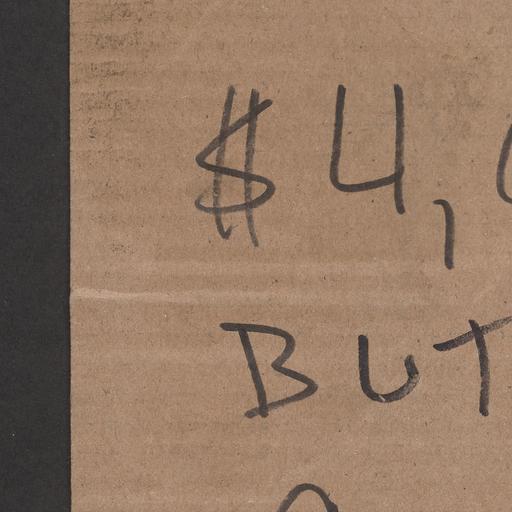 $4,
BUT